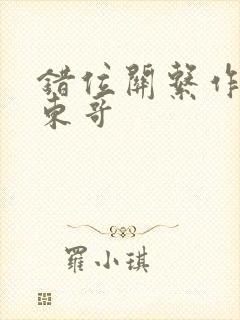 錯位關繫作
東哥
羅小琪